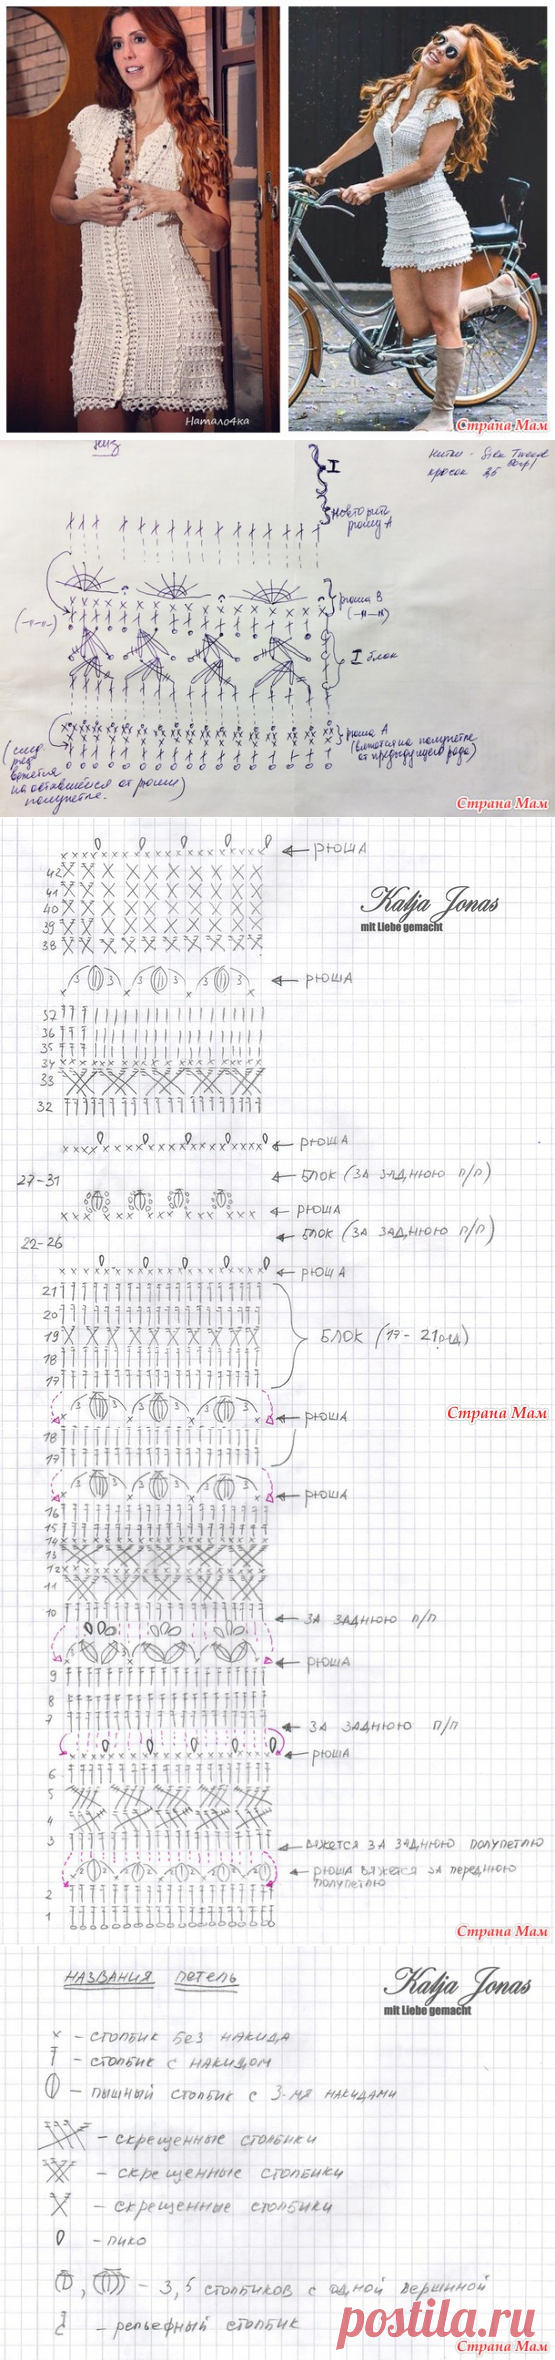 Натало4ка
Страна Мам
низ
I
повторить
рюшу А
рюша В
(-"-"-)
(-"-"-)
I блок
рюша А
(вяжется на полупетле
от предыдущего ряда)
(след.
ряд
вяжется
на оставшиеся от рюши
полупетле.)
Страна Мам
← РЮША
42
41
40
39
38
Katja Jonas
mit Liebe gemacht
3 3 3
← РЮША
37
36
35
34
33
32
← РЮША
27-31
← БЛОК (ЗА ЗАДНЮЮ П/П)
← РЮША
← БЛОК (ЗА ЗАДНЮЮ П/П)
22-26
← РЮША
21
20
19
БЛОК (17-21 ряд)
18
17
3 3 3
← РЮША
Страна Мам
18
17
3 3 3
← РЮША
16
15
14
13
12
11
10
← ЗА ЗАДНЮЮ П/П
3 3 3
← РЮША
9
8
7
← ЗА ЗАДНЮЮ П/П
← РЮША
6
5
4
3
← ВЯЖЕТСЯ ЗА ЗАДНЮЮ ПОЛУПЕТЛЮ
2 2 2 2 2
← РЮША ВЯЖЕТСЯ ЗА ПЕРЕДНЮЮ
ПОЛУПЕТЛЮ
2
1
Страна Мам
НАЗВАНИЯ ПЕТЕЛЬ
Katja Jonas
mit Liebe gemacht
× - СТОЛБИК БЕЗ НАКИДА
- СТОЛБИК С НАКИДОМ
- ПЫШНЫЙ СТОЛБИК С 3-МЯ НАКИДАМИ
- СКРЕЩЕННЫЕ СТОЛБИКИ
- СКРЕЩЕННЫЕ СТОЛБИКИ
- СКРЕЩЕННЫЕ СТОЛБИКИ
- ПИКО
, - 3,5 СТОЛБИКОВ С ОДНОЙ ВЕРШИНОЙ
- РЕЛЬЕФНЫЙ СТОЛБИК
postila.ru
Страна Мам